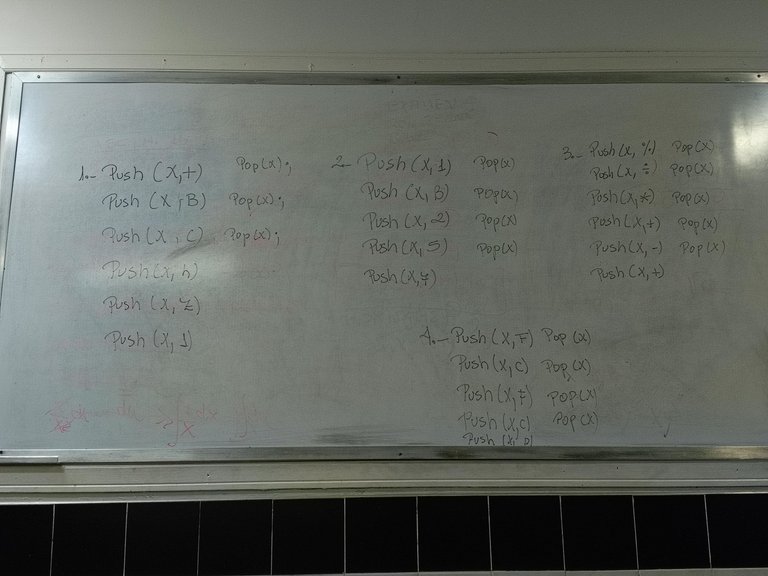 1.- Push (X,+) Pop(x);
Push (X,B) Pop(x);
Push (X,C) Pop(x);
Push (X,h)
Push (X,Z)
Push (X,1)
2- Push(X,1) Pop(x)
Push(X,B) Pop(x)
Push(X,2) Pop(x)
Push(X,5) Pop(x)
Push(X,7)
3.- Push(X,%) Pop(X)
Push(X,÷) Pop(X)
Push(X,*) Pop(X)
Push(X,+) Pop(X)
Push(X,-) Pop(X)
Push(X,+)
4.- Push(X,F) Pop(X)
Push(X,C) Pop(X)
Push(X,F) Pop(X)
Push(X,C) Pop(X)
Push(X,D)